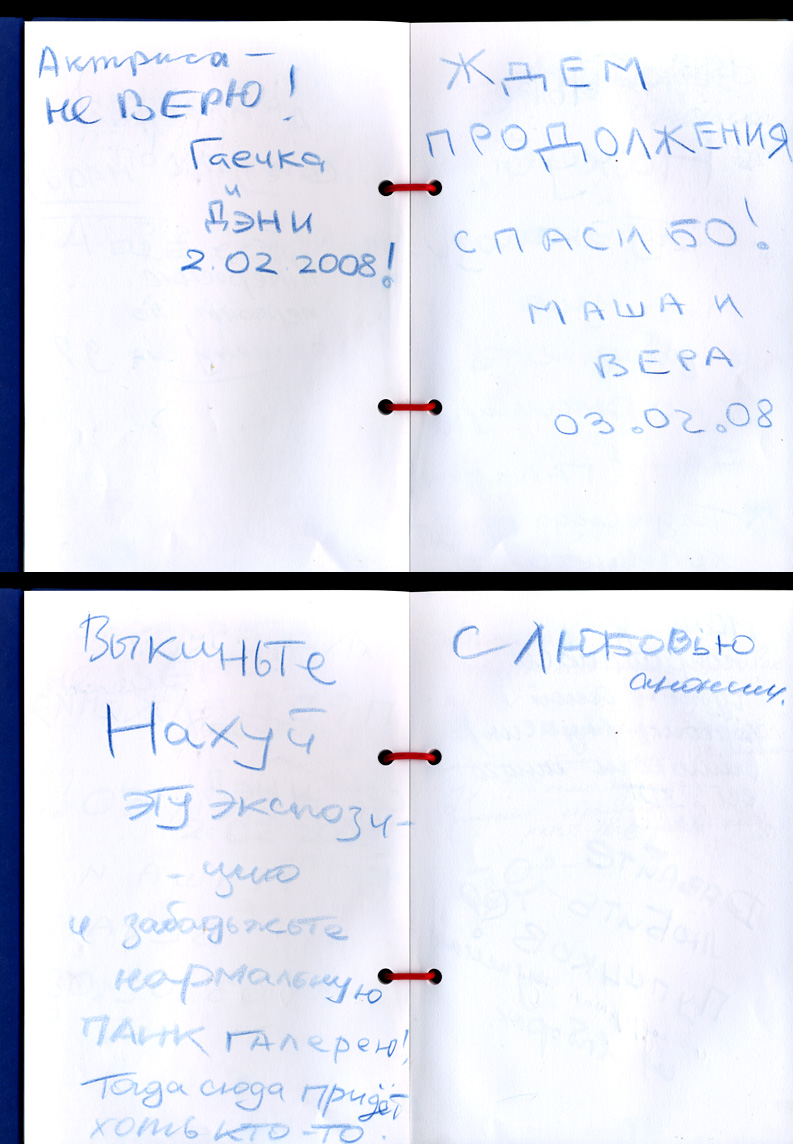 Актриса –
не ВЕРЮ!
Гаечка
и
Дэни
2.02.2008!
ЖДЕМ
ПРОДОЛЖЕНИЯ
СПАСИБО!
МАША И
ВЕРА
03.02.08
Выкиньте
Нахуй
эту экспози-
-цию
и забадяжьте
нормальную
ПАНК ГАЛЕРЕЮ!
Тогда сюда придёт
хоть кто-то.
С ЛЮБОВЬЮ
аноним.